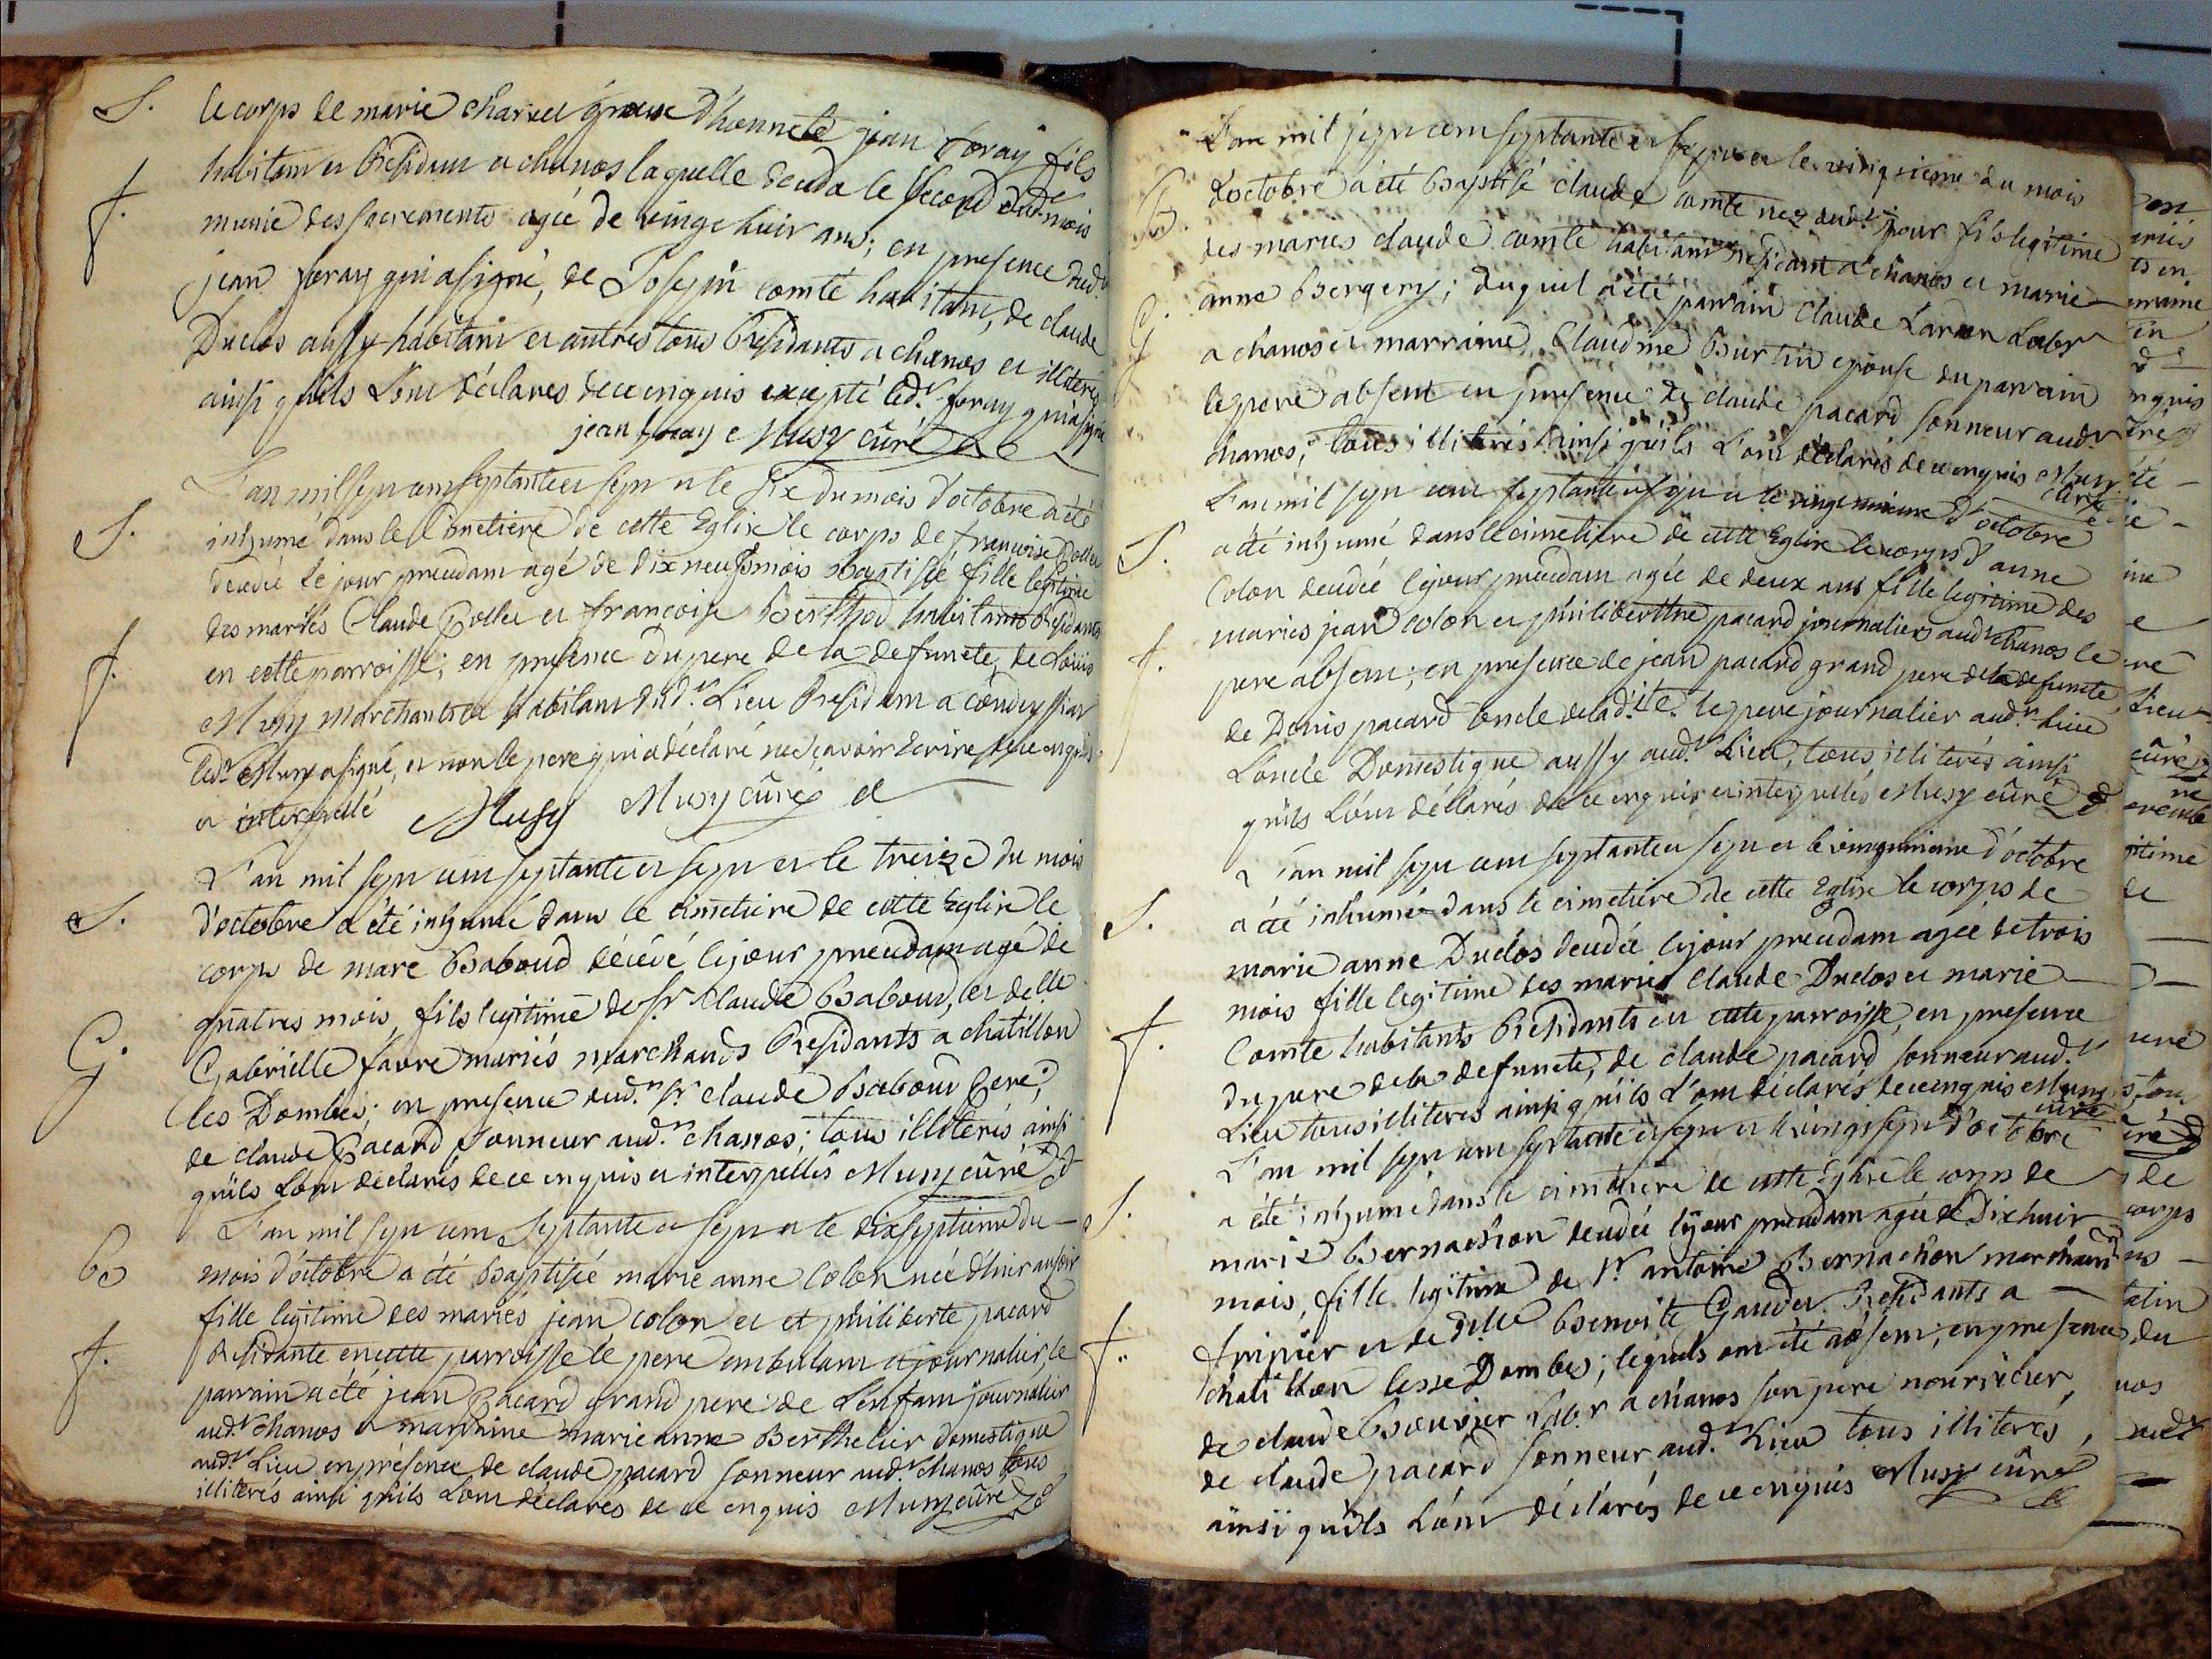 S. le corps de marie charvet épouse d'honnete jean foray fils
habitant et Residant a chanos laquelle deceda le second dud. mois
f. munie des sacrements agée de vingt huit ans; en presence dud.
jean foray qui a signé, de Joseph comte habitant, de claude
Duclos aussy habitant et autres tous Residants a chanos et illiterés
ainsi quils L'ont déclarés de ce enquis excepté led.r foray qui a signé
jean foray Musy curé
L'an mil sept cent septante et sept et le six du mois d'octobre a été
S. inhumé dans le Cimetiere de cette Eglise le corps de francoise
decedée le jour precedam agé de dix neuf mois baptisée fille legitime
des mariés Claude et francoise Berthod habitants Residants
f. en cette parroisse; en presence du pere de la defuncte, de Loüis
Musy marchand et habitant dud.r Lieu Residant a condeyssiat
led.r Musy a signé, et non le pere qui a déclaré ne sçavoir Ecrire de ce enquis
et interpellé Musy Musy curé
L'an mil sept cent septante et sept et le treize du mois
S. d'octobre a été inhumé dans le cimetiere de cette Eglise le
corps de marc Baboud décédé le jour precedam agé de
quatres mois, fils legitime de Sr Claude Baboud, et delle
G. Gabriëlle favre mariés marchands Residants a chatillon
les Dombes; en presence dud.r Sr. claude Baboud Pere;
de claude Pacard Sonneur aud.r chanos; tous illiterés ainsi
quils Lont declarés de ce enquis et interpellés Musy curé
L'an mil sept cent septante et sept et le dixseptieme du
B mois d'octobre a été Baptisée marie anne Colon née d'hier au soir
fille legitime des mariés jean colon et et philiberte pacard
f. Residante en cette parroisse le pere ambulant et journalier, le
parrain a été jean Pacard grand pere de L'enfant journalier
aud.r chanos et marraine marie anne Berthelier domestique
aud.r Lieu en présence de claude pacard sonneur aud.r chanos tous
illiterés ainsi quils Lont déclarés de ce enquis Musy curé
L'an mil sept cent septante et sept et le vingtieme du mois
B. d'octobre a été Baptisé claude comte nez dud.r jour fils legitime
des mariés claude comte habitant Residant a chanos et marie
G anne Bergery; duquel a été parrain Claude Labr
a chanos et marraine Claudine Burtin epouse du parrain
le pere absent en presence de claude pacard sonneur aud.r
chanos; tous illiterés ainsi quils L'ont déclarés de ce enquis Musy
curé
L'an mil sept cent septante et sept et le d'octobre
S. a été inhumé dans le cimetiere de cette Eglise le corps d'anne
Colon decedée le jour precedam agée de deux ans fille legitime des
mariés jean colon et philiberthe pacard journaliers aud.r chanos le
f. pere absent; en presence de jean pacard grand pere de la defuncte,
de Denis pacard oncle de lad.ite le pere journalier aud.r Lieu
L'oncle Domestique aussy aud.r Lieu, tous illiterés ainsi
quils L'ont déclarés de ce enquis et interpellés Musy curé
L'an mil sept cent septante et sept et le d'octobre
S. a été inhumée dans le cimetiere de cette Eglise le corps de
marie anne Duclos decedée le jour precedam agée de trois
mois fille legitime des mariés claude Duclos et marie
f. Comte habitants Residants en cette parroisse, en presence
du pere de la defuncte, de claude pacard sonneur aud.r
Lieu tous illiterés ainsi quils L'ont déclarés de ce enquis Musy
curé
L'an mil sept cent septante et sept et le vingt sept d'octobre
S. a été inhumé dans le cimetiere de cette Eglise le corps de
marie Bernachon decedée le jour precedam agée de Dix huit
mois, fille legitime de Sr antoine Bernachon marchand
f. fripier et de delle Benoite Gaudet Residants a
chatillon lesse Dombes; lequels ont été absent; en presence
de claude Bouvier Lab.r a chanos son pere nouricier,
de claude pacard sonneur aud.r Lieu tous illiterés,
ainsi quils L'ont déclarés de ce enquis Musy curé